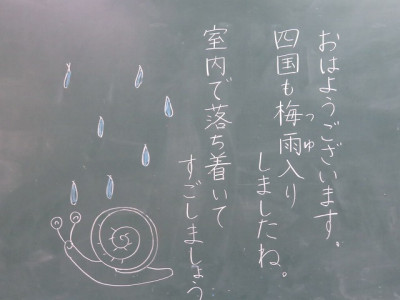 おはようございます。
四国も梅雨入り
つゆ
しましたね。
室内で落ち着いて
すごしましょう